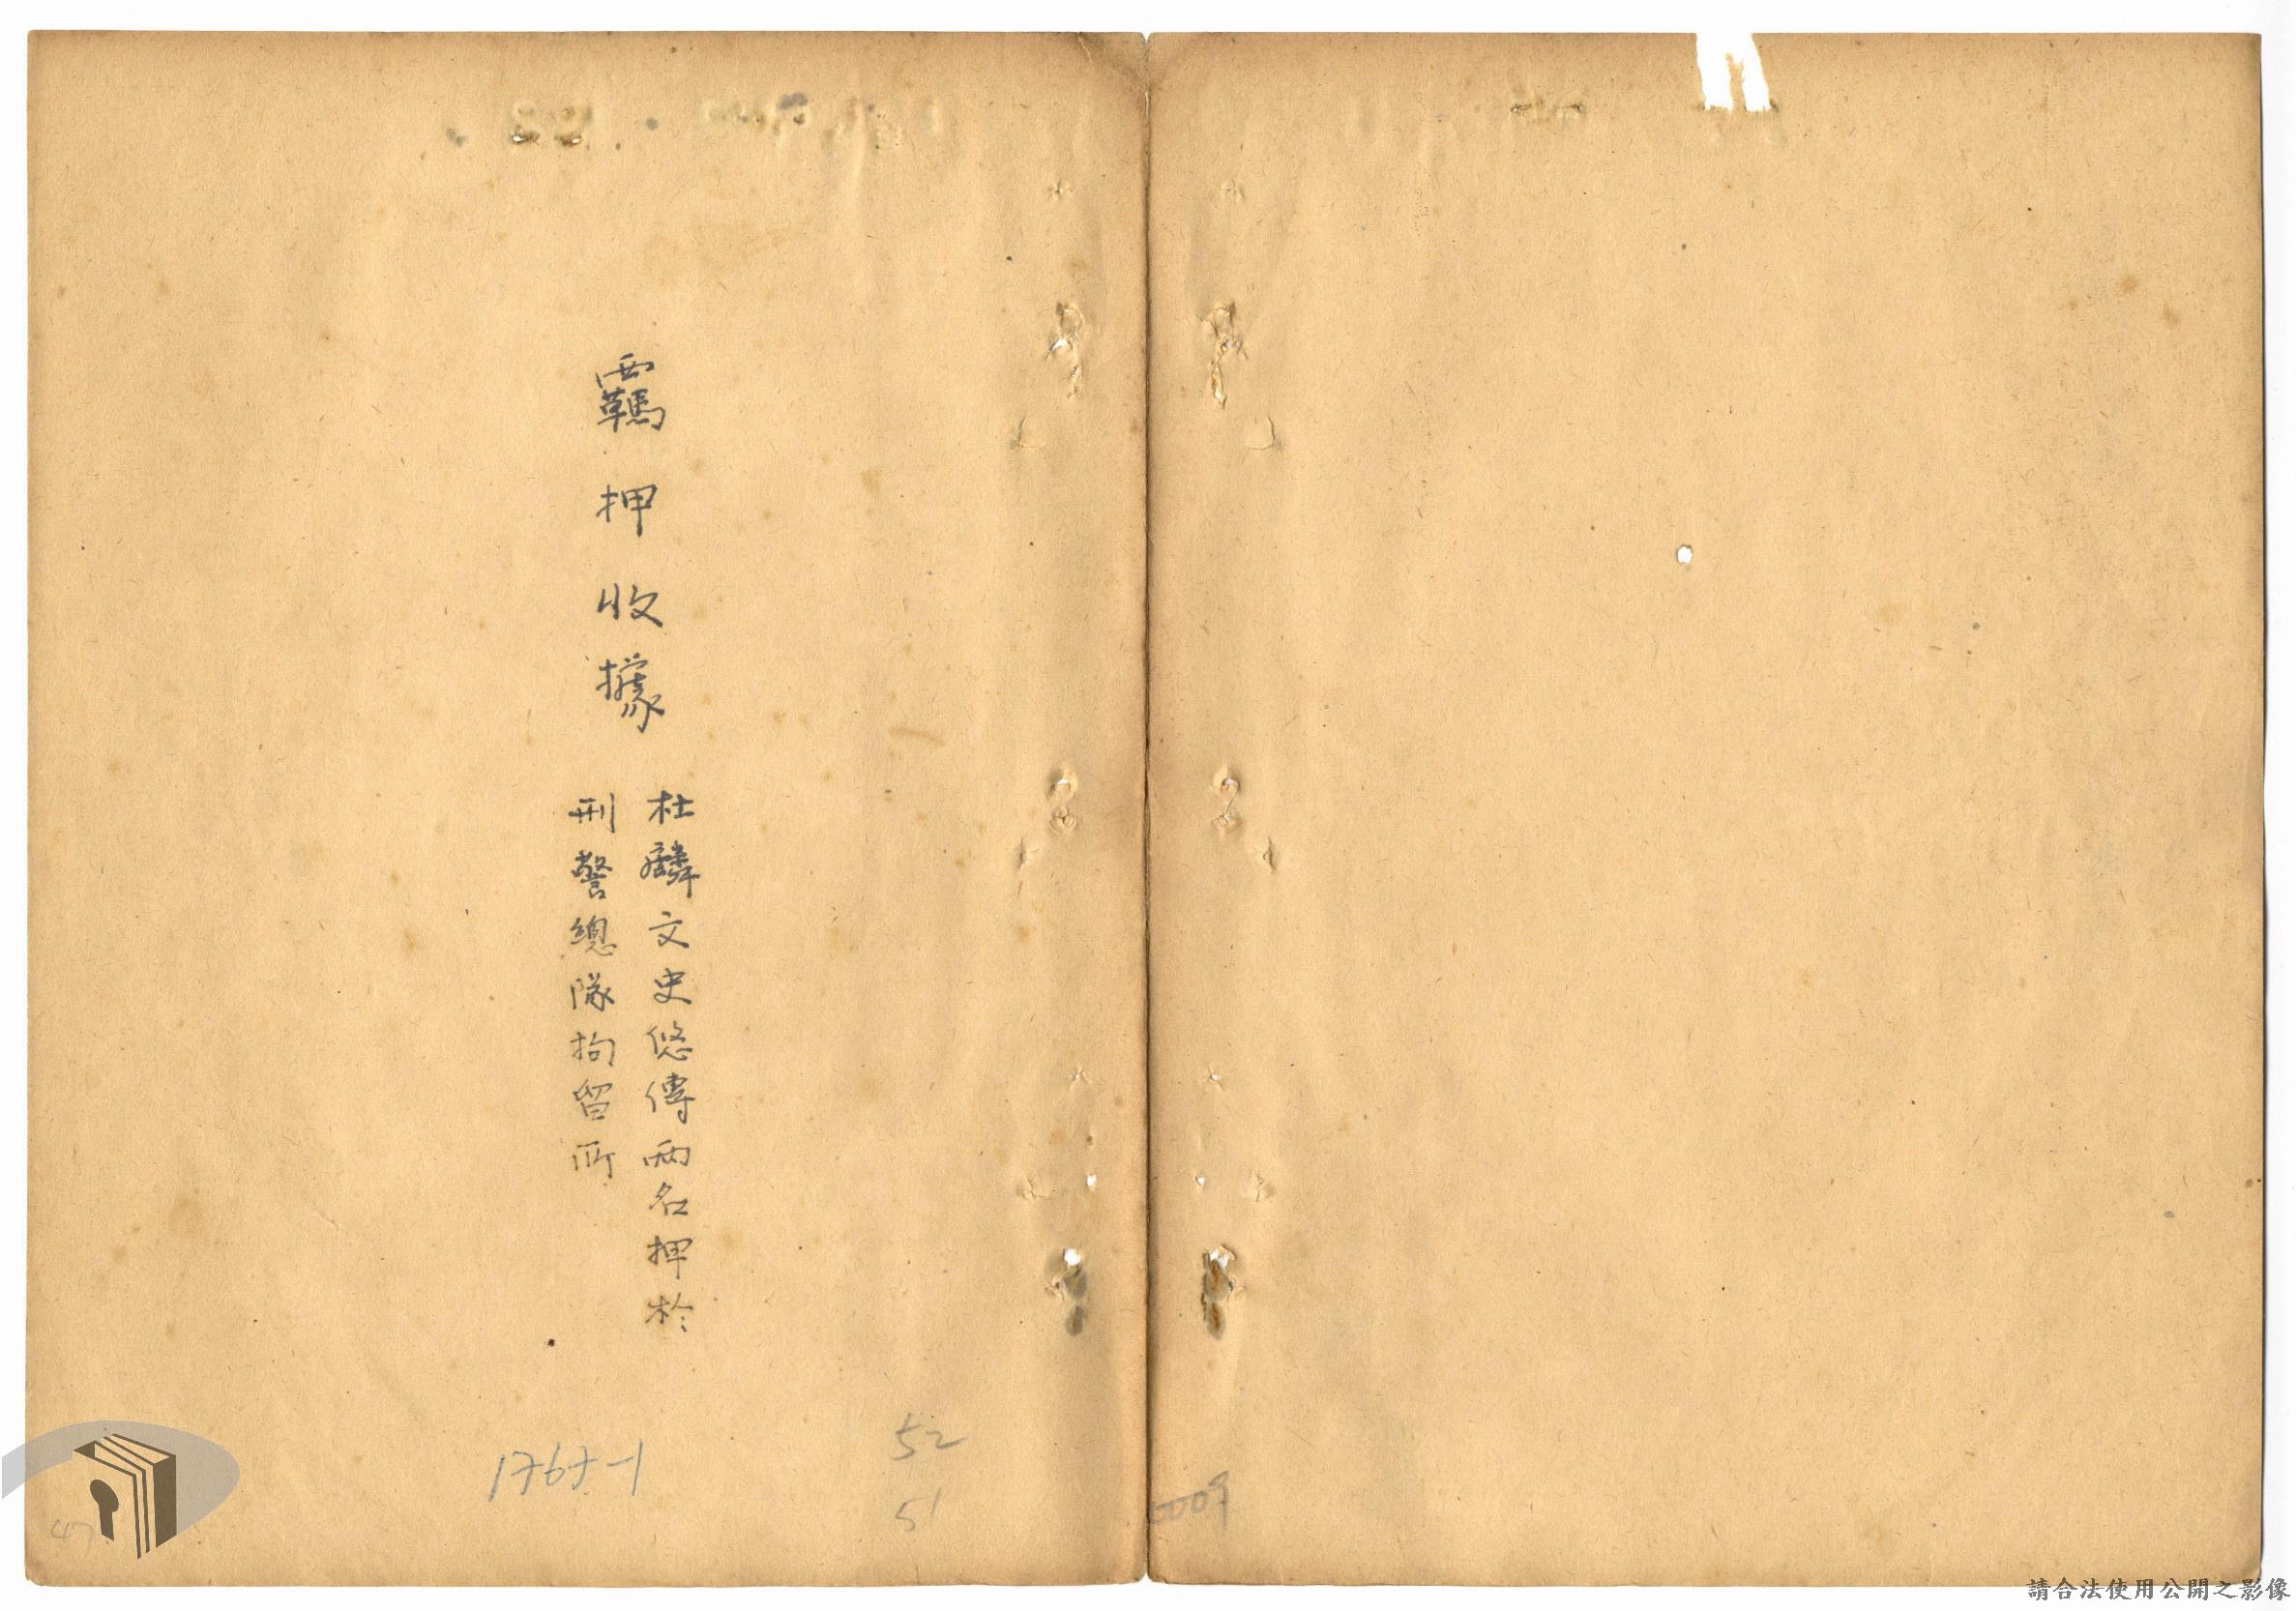 羈押收據
杜麟文史悠傳兩名押於
刑警總隊拘留所
52
51
1767-1
47
0009
請合法使用公開之影像